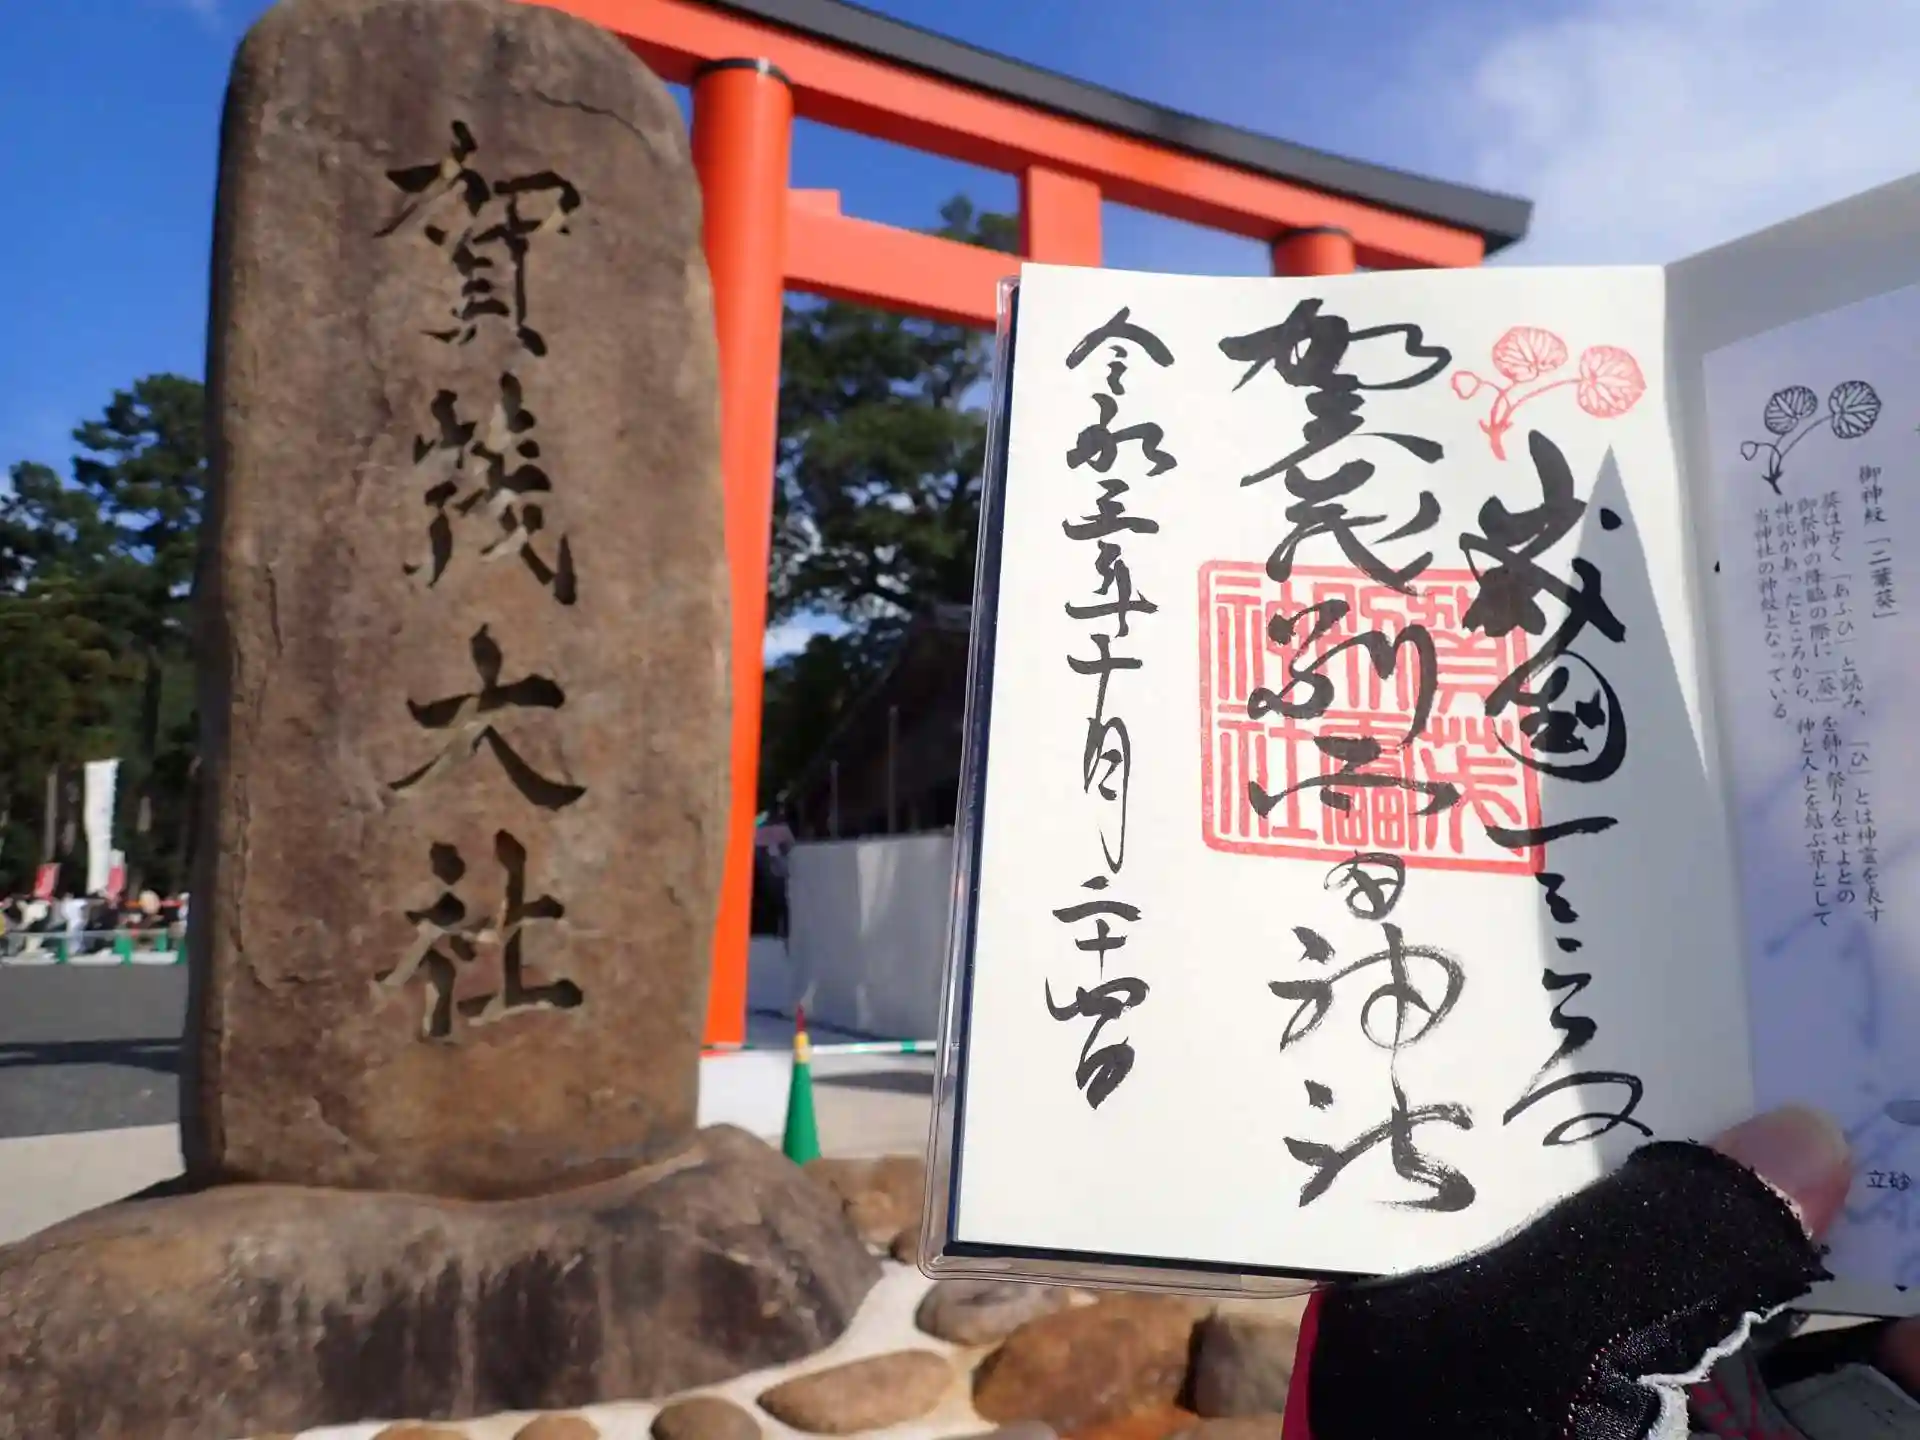 賀茂大社
山城國一之宮
賀茂別雷神社
賀茂別雷神社
令和三年十月二十四日
御神紋「二葉葵」
葵は古く「あふひ」と読み、「ひ」とは神霊を表す
御祭神の降臨の際に「葵」を飾り祭りをせよとの
神託があったところから、神と人とを結ぶ草として
当神社の神紋となっている
立砂